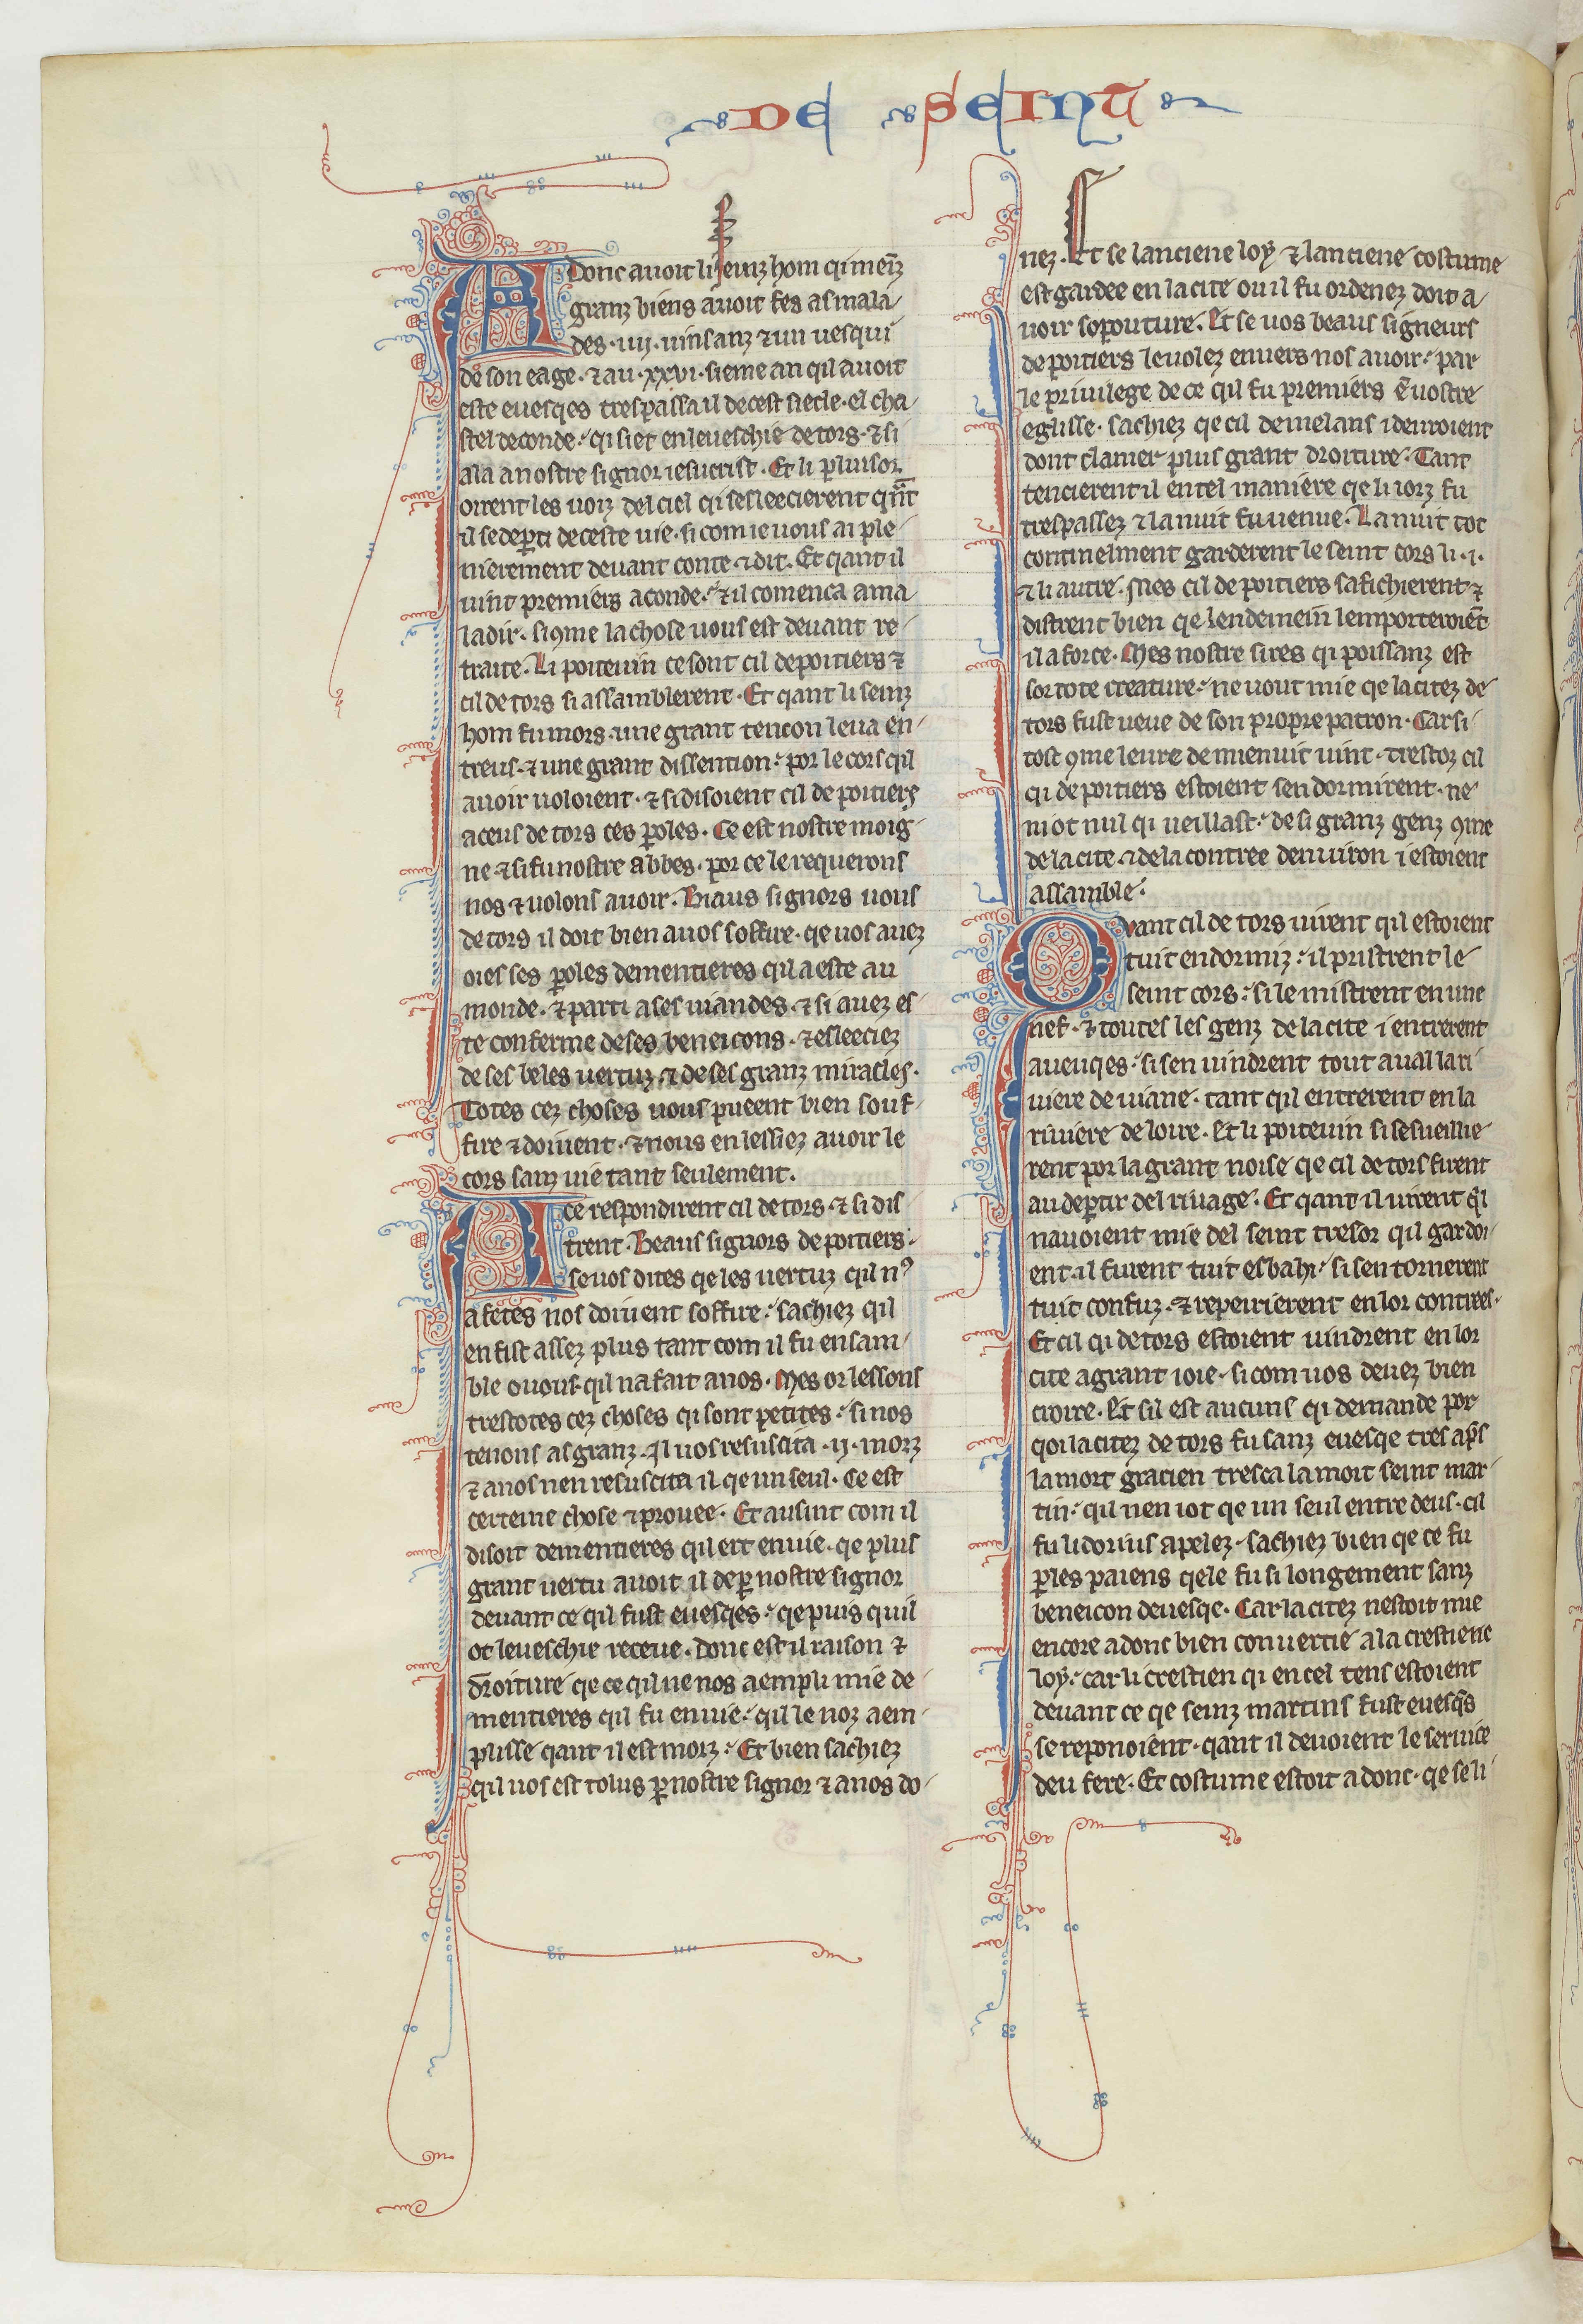 DE SEINT
Adonc auoit li seinz hom qi meinz
granz biens auoit fes as mala
des .iiij. uinz anz ⁊ un uesqui
de son eage. ⁊ au .xxvi. sieme an qil auoit
este euesqes trespassa il de cest siecle. el cha
stel de conde. qi siet en leueschie de tors. ⁊ si
ala a nostre signor iesucrist. Et li pluisor
oirent les uoiz del ciel qi sesleecierent qn̄t
il se deꝑti de ceste uie. si com ie uous ai ple
nierement deuant conte ⁊ dit. Et qant il
uint premiers a conde. ⁊ il comenca a ma
ladir. si ꝯme la chose uous est deuant re
traite. Li poiteuin ce sont cil de poitiers ⁊
cil de tors si assamblerent. Et qant li seinz
hom fu mors. une grant tencon leua en
treus. ⁊ une grant dissention. por le cors qil
auoir uoloient. ⁊ si disoient cil de poitiers
a ceus de tors ces ꝑoles. Ce est nostre moig
ne ⁊ si fu nostre abbes. por ce le requerons
nos ⁊ uolons auoir. Biaus signors uous
de tors il doit bien a uos soffire. qe uos auez
oies ses ꝑoles dementieres qil a este au
monde. ⁊ parti a ses uiandes. ⁊ si auez es
te conferme de ses beneicons. ⁊ esleeciez
de ses beles uertuz. ⁊ de ses granz miracles.
Totes cez choses uous pueent bien souf
fire ⁊ doiuent. ⁊ nous en lessiez auoir le
cors sanz uie tant seulement.
A ce respondirent cil de tors. ⁊ si dis
trent. Beaus signors de poitiers.
se uos dites qe les uertuz qil nꝰ
a fetes nos doiuent soffire. sachiez qil
en fist assez plus tant com il fu ensam
ble o uous. qil na fait a nos. Mes or lessons
trestotes cez choses qi sont petites. si nos
tenons as granz. Il uos resuscita .ij. morz
⁊ a nos nen resuscita il qe un seul. Ce est
certeine chose ⁊ prouee. Et ausint com il
disoit dementieres qil ert en uie. qe plus
grant uertu auoit il de ꝑ nostre signor
deuant ce qil fust euesqes. qe puis quil
ot leueschie receue. Donc est il raison ⁊
droiture qe ce qil ne nos a empli mie de
mentieres qil fu en uie. qil le noz aem
plisse qant il est morz. Et bien sachiez
qil uos est tolus ꝑ nostre signor ⁊ a nos do
nez. Et se lanciene loy ⁊ lanciene costume
est gardee en la cite ou il fu ordenez doit a
uoir sepouture. Et se uos beaus signeurs
de poitiers le uolez enuers nos auoir. par
le priuilege de ce qil fu premiers ē uostre
eglisse. sachiez qe cil de melans i deuroient
dont clamer plus grant droiture. Tant
tencierent il en tel maniere qe li iorz fu
trespassez ⁊ la nuit fu uenue. La nuit tot
continelment garderent le seint cors li .i.
⁊ li autre. Mes cil de poitiers safichierent ⁊
distrent bien qe lendemein lemporteroiēt
il a force. Mes nostre sires qi poissanz est
sor tote creature. ne uout mie qe la citez de
tors fust ueue de son propre patron. Car si
tost ꝯme leure de mienuit uint. trestoz cil
qi de poitiers estoient sendormirent. ne
ni ot nul qi ueillast. de si granz genz ꝯme
de la cite ⁊ de la contree denuiron i estoient
assamble.
Qvant cil de tors uirent qil estoient
tuit endormiz. il pristrent le
seint cors. si le mistrent en une
nef. ⁊ toutes les genz de la cite i entrerent
auecqes. si sen uindrent tout aual la ri
uiere de uiane. tant qil entrerent en la
riuiere de loire. Et li poiteuin si sesueillie
rent por la grant noise qe cil de tors firent
au deꝑtir del riuage. Et qant il uirent qil
nauoient mie del seint tresor qil gardoi
ent. il furent tuit esbahi. si sen tornerent
tuit confuz. ⁊ repeirierent en lor contrees.
Et cil qi de tors estoient uindrent en lor
cite a grant ioie. si com uos deuez bien
croire. Et sil est aucuns qi demande por
qoi la citez de tors fu sanz euesqe tres apͤs
la mort gracien tresca la mort seint mar
tin. qil nen i ot qe un seul entre deus. cil
fu lidorius apelez. sachiez bien qe ce fu
ꝑ les paiens qele fu si longement sanz
beneicon deuesqe. Car la citez nestoit mie
encore adonc bien conuertie a la crestiene
loy. car li crestien qi en cel tens estoient
deuant ce qe seinz martins fust euesqͤs
se reponoient. qant il deuoient le seruice
deu fere. Et costume estoit adonc. qe se li